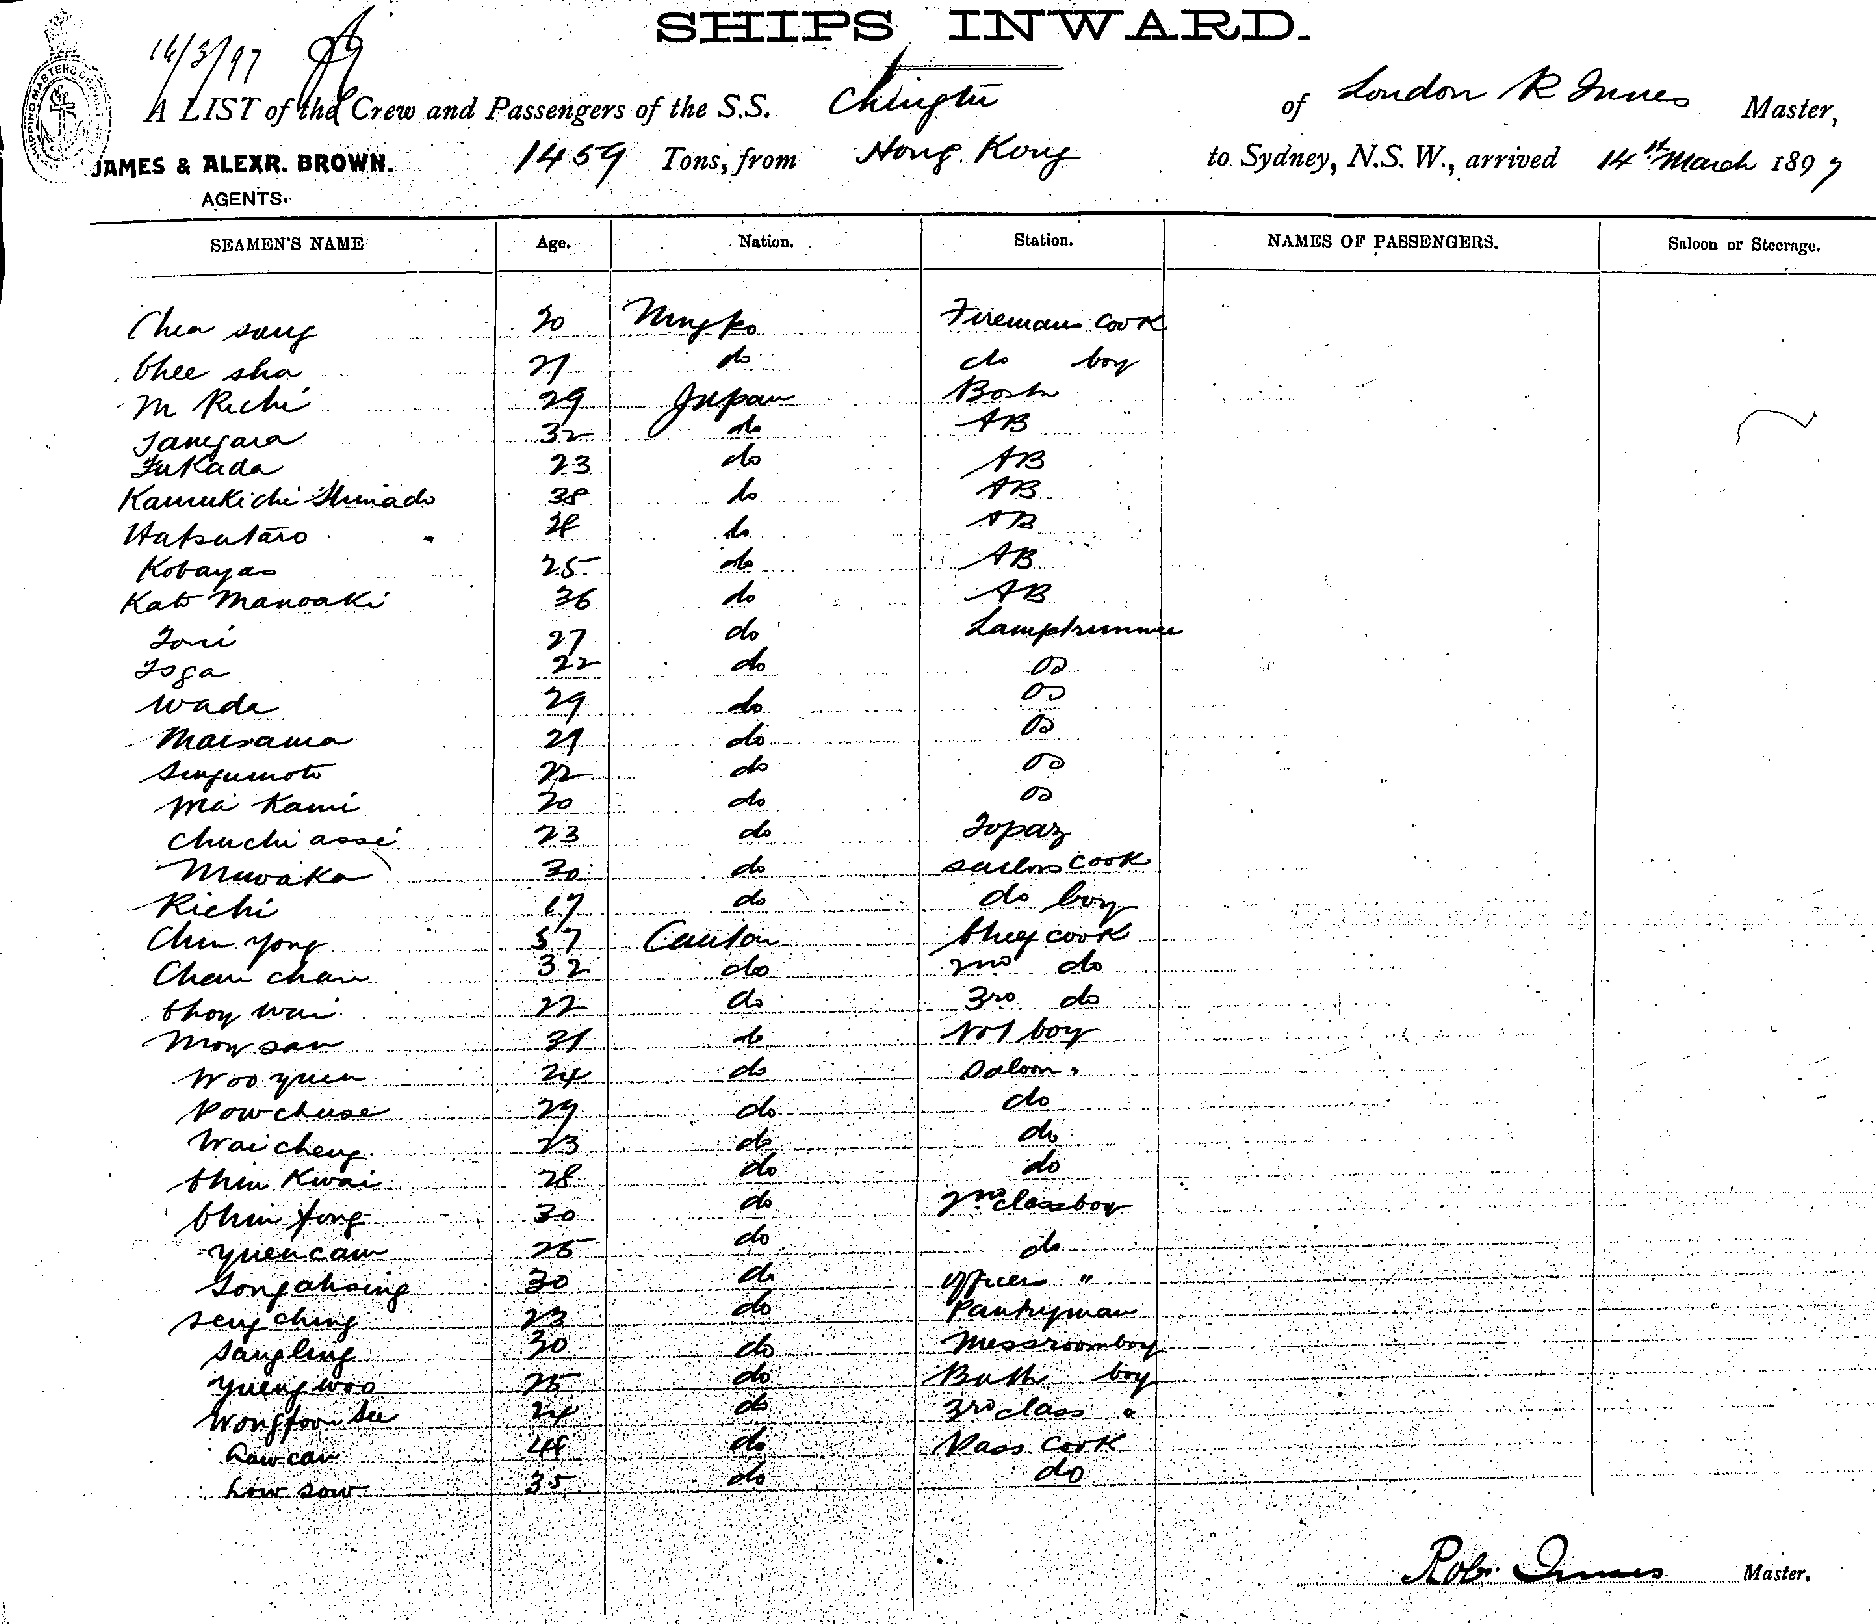 SHIPS INWARD.
16/3/97
A LIST of the Crew and Passengers of the S.S. Chingtu of London R Innes Master,
JAMES & ALEXR. BROWN. 1459 Tons, from Hong Kong to Sydney, N.S.W., arrived 14th March 1897
AGENTS.
SEAMEN'S NAME Age. Nation. Station. NAMES OF PASSENGERS. Saloon or Steerage.
Chea sang 20 Ningpo Firemans cook
Chee sha 21 do do boy
M Richi 29 Japan Bosn
32 do AB
Fukada 23 do AB
Kamekichi Shimado 38 do AB
Hatsutaro do AB
Kobayas 25 do AB
Kato Manoaki 36 do AB
Tori 27 do Lamptrimmer
Toga 22 do OS
Wada 29 do OS
Maisama 21 do OS
Sugumoto 22 do OS
Ma Kami 20 do OS
Chuchi assé 23 do Topaz
Muwaka 30 do sailors cook
Richi 17 do do boy
Chun Yong 57 Canton Chief cook
Chan chan 32 do 2nd do
Choy wai 22 do 3rd do
Moy san 31 do No1 boy
Woo yuen 24 do Saloon "
Pow chuse 29 do do
Wai cheng 23 do do
Chin Kwai 28 do do
Chin fong 30 do 2nd class boy
Yuen cam 25 do do
Song ahsing 30 do officers "
Seng ching 23 do Pantryman
Sang ling 30 do Messroom boy
Yueng woo 25 do Bath boy
Wong foon See 24 do 3rd class "
Law can do Pass cook
Low sow 35 do do
Rob. Innes Master.